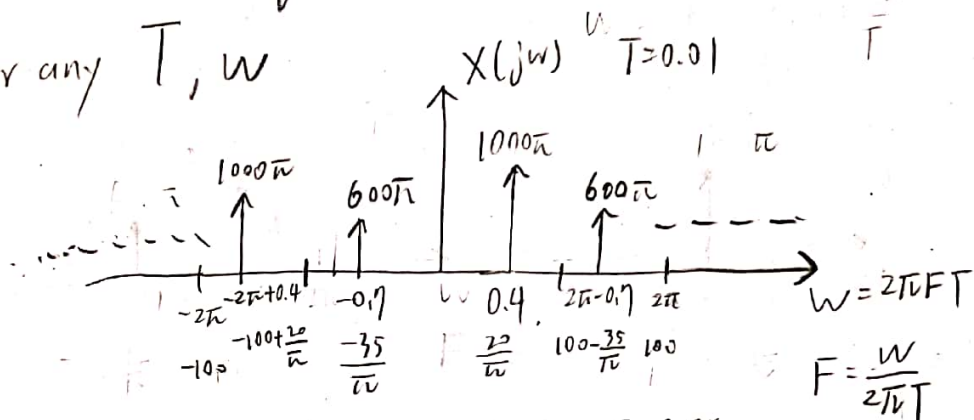 any T, w
X(jw) T=0.01
1000π 600π 1000π 600π
-2π -2π+0.4 -0.7 0.4 2π-0.7 2π
w = 2πFT
-100 -100+20/π -35/π 20/π 100-35/π 100
F = w/2πT